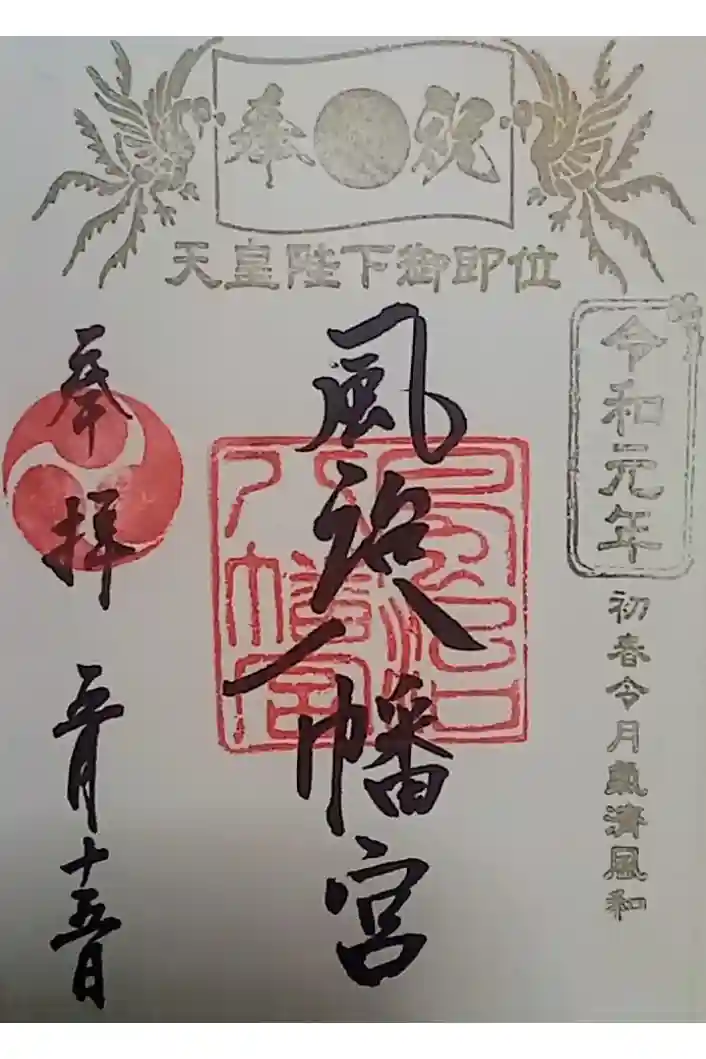 奉祝
天皇陛下御即位
令和元年
初春令月氣淑風和
風治八幡宮
風治八幡宮
奉拝
五月十五日